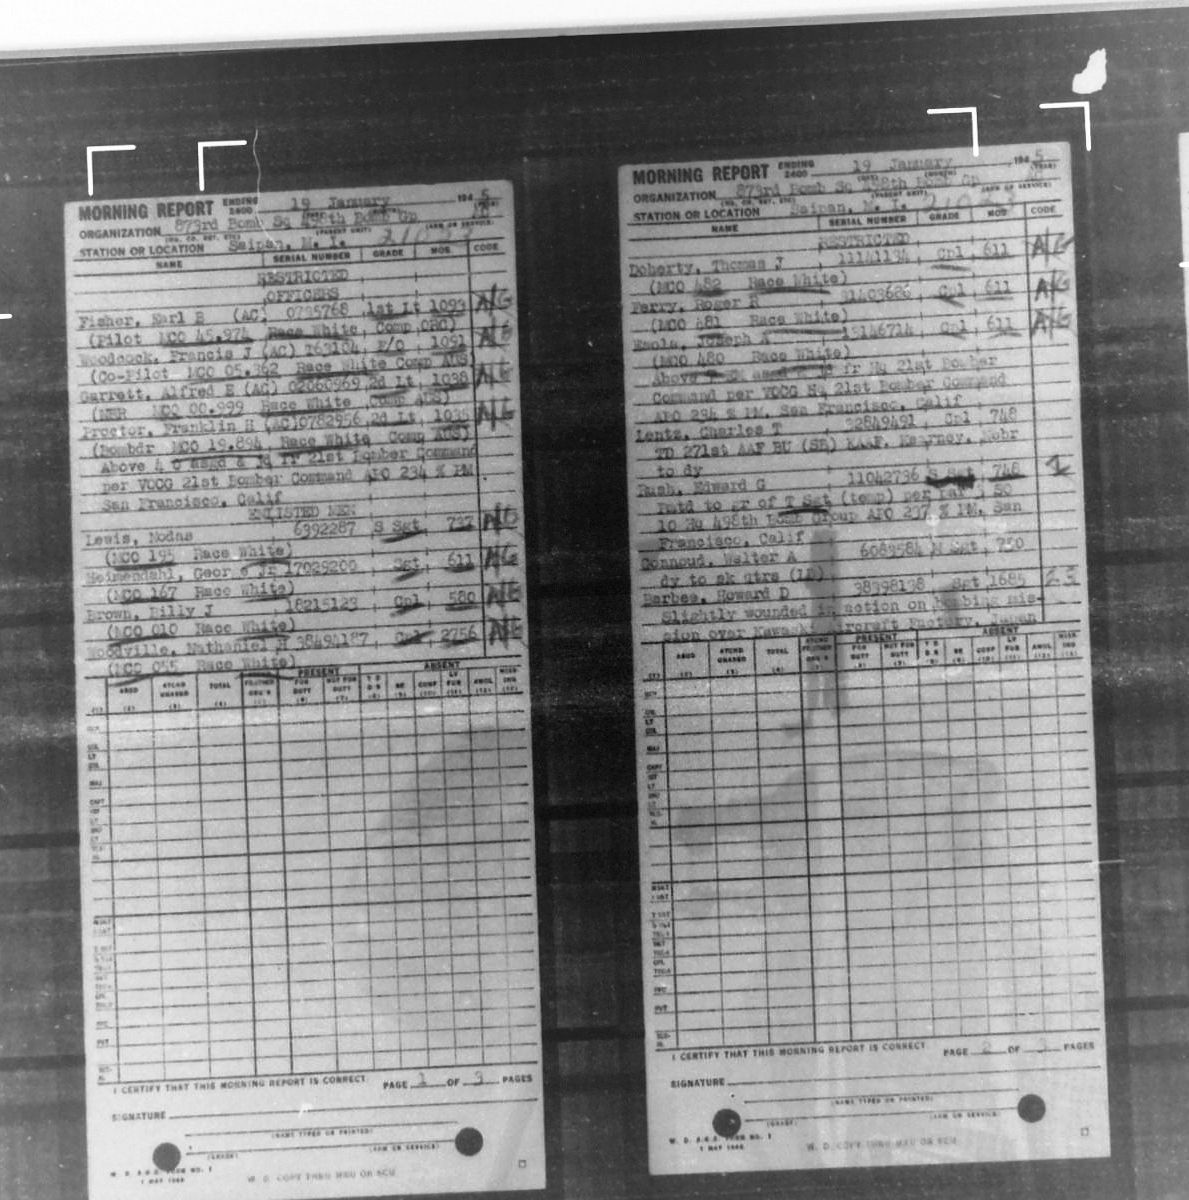 MORNING REPORT ENDING 2400 19 January 1945
ORGANIZATION 873rd Bomb Sq 498th Bomb Gp
STATION OR LOCATION Saipan, M. I.
NAME SERIAL NUMBER GRADE MOS CODE
RESTRICTED
OFFICERS
Fisher, Earl B (AC) 0735768 1st Lt 1093 A/G
(Pilot MCO 45.974 Race White Comp ORC)
Woodcock, Francis J (AC) T63104 F/O 1091 A/G
(Co-Pilot MCO 05.362 Race White Comp AUS)
Garrett, Alfred E (AC) 02060969 2d Lt 1038 A/G
(NBR MCO 00.999 Race White Comp AUS)
Proctor, Franklin H (AC) 0782956 2d Lt 1035 A/G
(Bombdr MCO 19.894 Race White Comp AUS)
Above 4 O asgd & jd fr 21st Bomber Command
per VOCG 21st Bomber Command APO 234 % PM
San Francisco, Calif
ENLISTED MEN
Lewis, Nodas 6392287 S Sgt 737
(MCO 195 Race White)
Heimendahl, George Jr 17029200 Sgt 611 A/G
(MCO 167 Race White)
Brown, Billy J 18215123 Cpl 580
(MCO 010 Race White)
Woodville, Nathaniel H 38494187 Cpl 2756
(MCO 055 Race White)
PRESENT ABSENT
ASGD ATCHD UNASGD TOTAL FOR DUTY NOT FOR DUTY SK CONF LV FUR AWOL
I CERTIFY THAT THIS MORNING REPORT IS CORRECT PAGE 1 OF 3 PAGES
SIGNATURE
(NAME TYPED OR PRINTED)
(GRADE) (ARM OR SERVICE)
W. D. A.G.O. FORM NO. 1
W. D. COPY THRU MRU OR SCU
MORNING REPORT ENDING 2400 19 January 1945
ORGANIZATION 873rd Bomb Sq 498th Bomb Gp
STATION OR LOCATION Saipan, M. I.
NAME SERIAL NUMBER GRADE MOS CODE
RESTRICTED
Doherty, Thomas J 11141134 Cpl 611 A/G
(MCO 482 Race White)
Perry, Roger R 31403686 Cpl 611 A/G
(MCO 481 Race White)
Joseph A 15146714 Cpl 611 A/G
(MCO 480 Race White)
Above asgd & jd fr Hq 21st Bomber
Command per VOCG Hq 21st Bomber Command
APO 234 % PM, San Francisco, Calif
Lentz, Charles T 32849491 Cpl 748
TD 271st AAF BU (SB) KAAF, Kearney, Nebr
to dy
Rush, Edward G 11042796 S Sgt 748
Pmtd to gr of T Sgt (temp) per Par 3 SO
10 Hq 498th Bomb Group APO 237 % PM, San
Francisco, Calif
Connoud, Walter A 6083584 M Sgt 750
dy to sk qtrs (LD)
Howard D 38398138 Sgt 1685
Slightly wounded in action on bombing mis-
sion over Kawasaki Aircraft Factory, Japan
PRESENT ABSENT
ASGD ATCHD UNASGD TOTAL FOR DUTY NOT FOR DUTY SK CONF LV FUR AWOL
I CERTIFY THAT THIS MORNING REPORT IS CORRECT PAGE 2 OF 3 PAGES
SIGNATURE
(NAME TYPED OR PRINTED)
(GRADE) (ARM OR SERVICE)
W. D. A.G.O. FORM NO. 1
W. D. COPY THRU MRU OR SCU